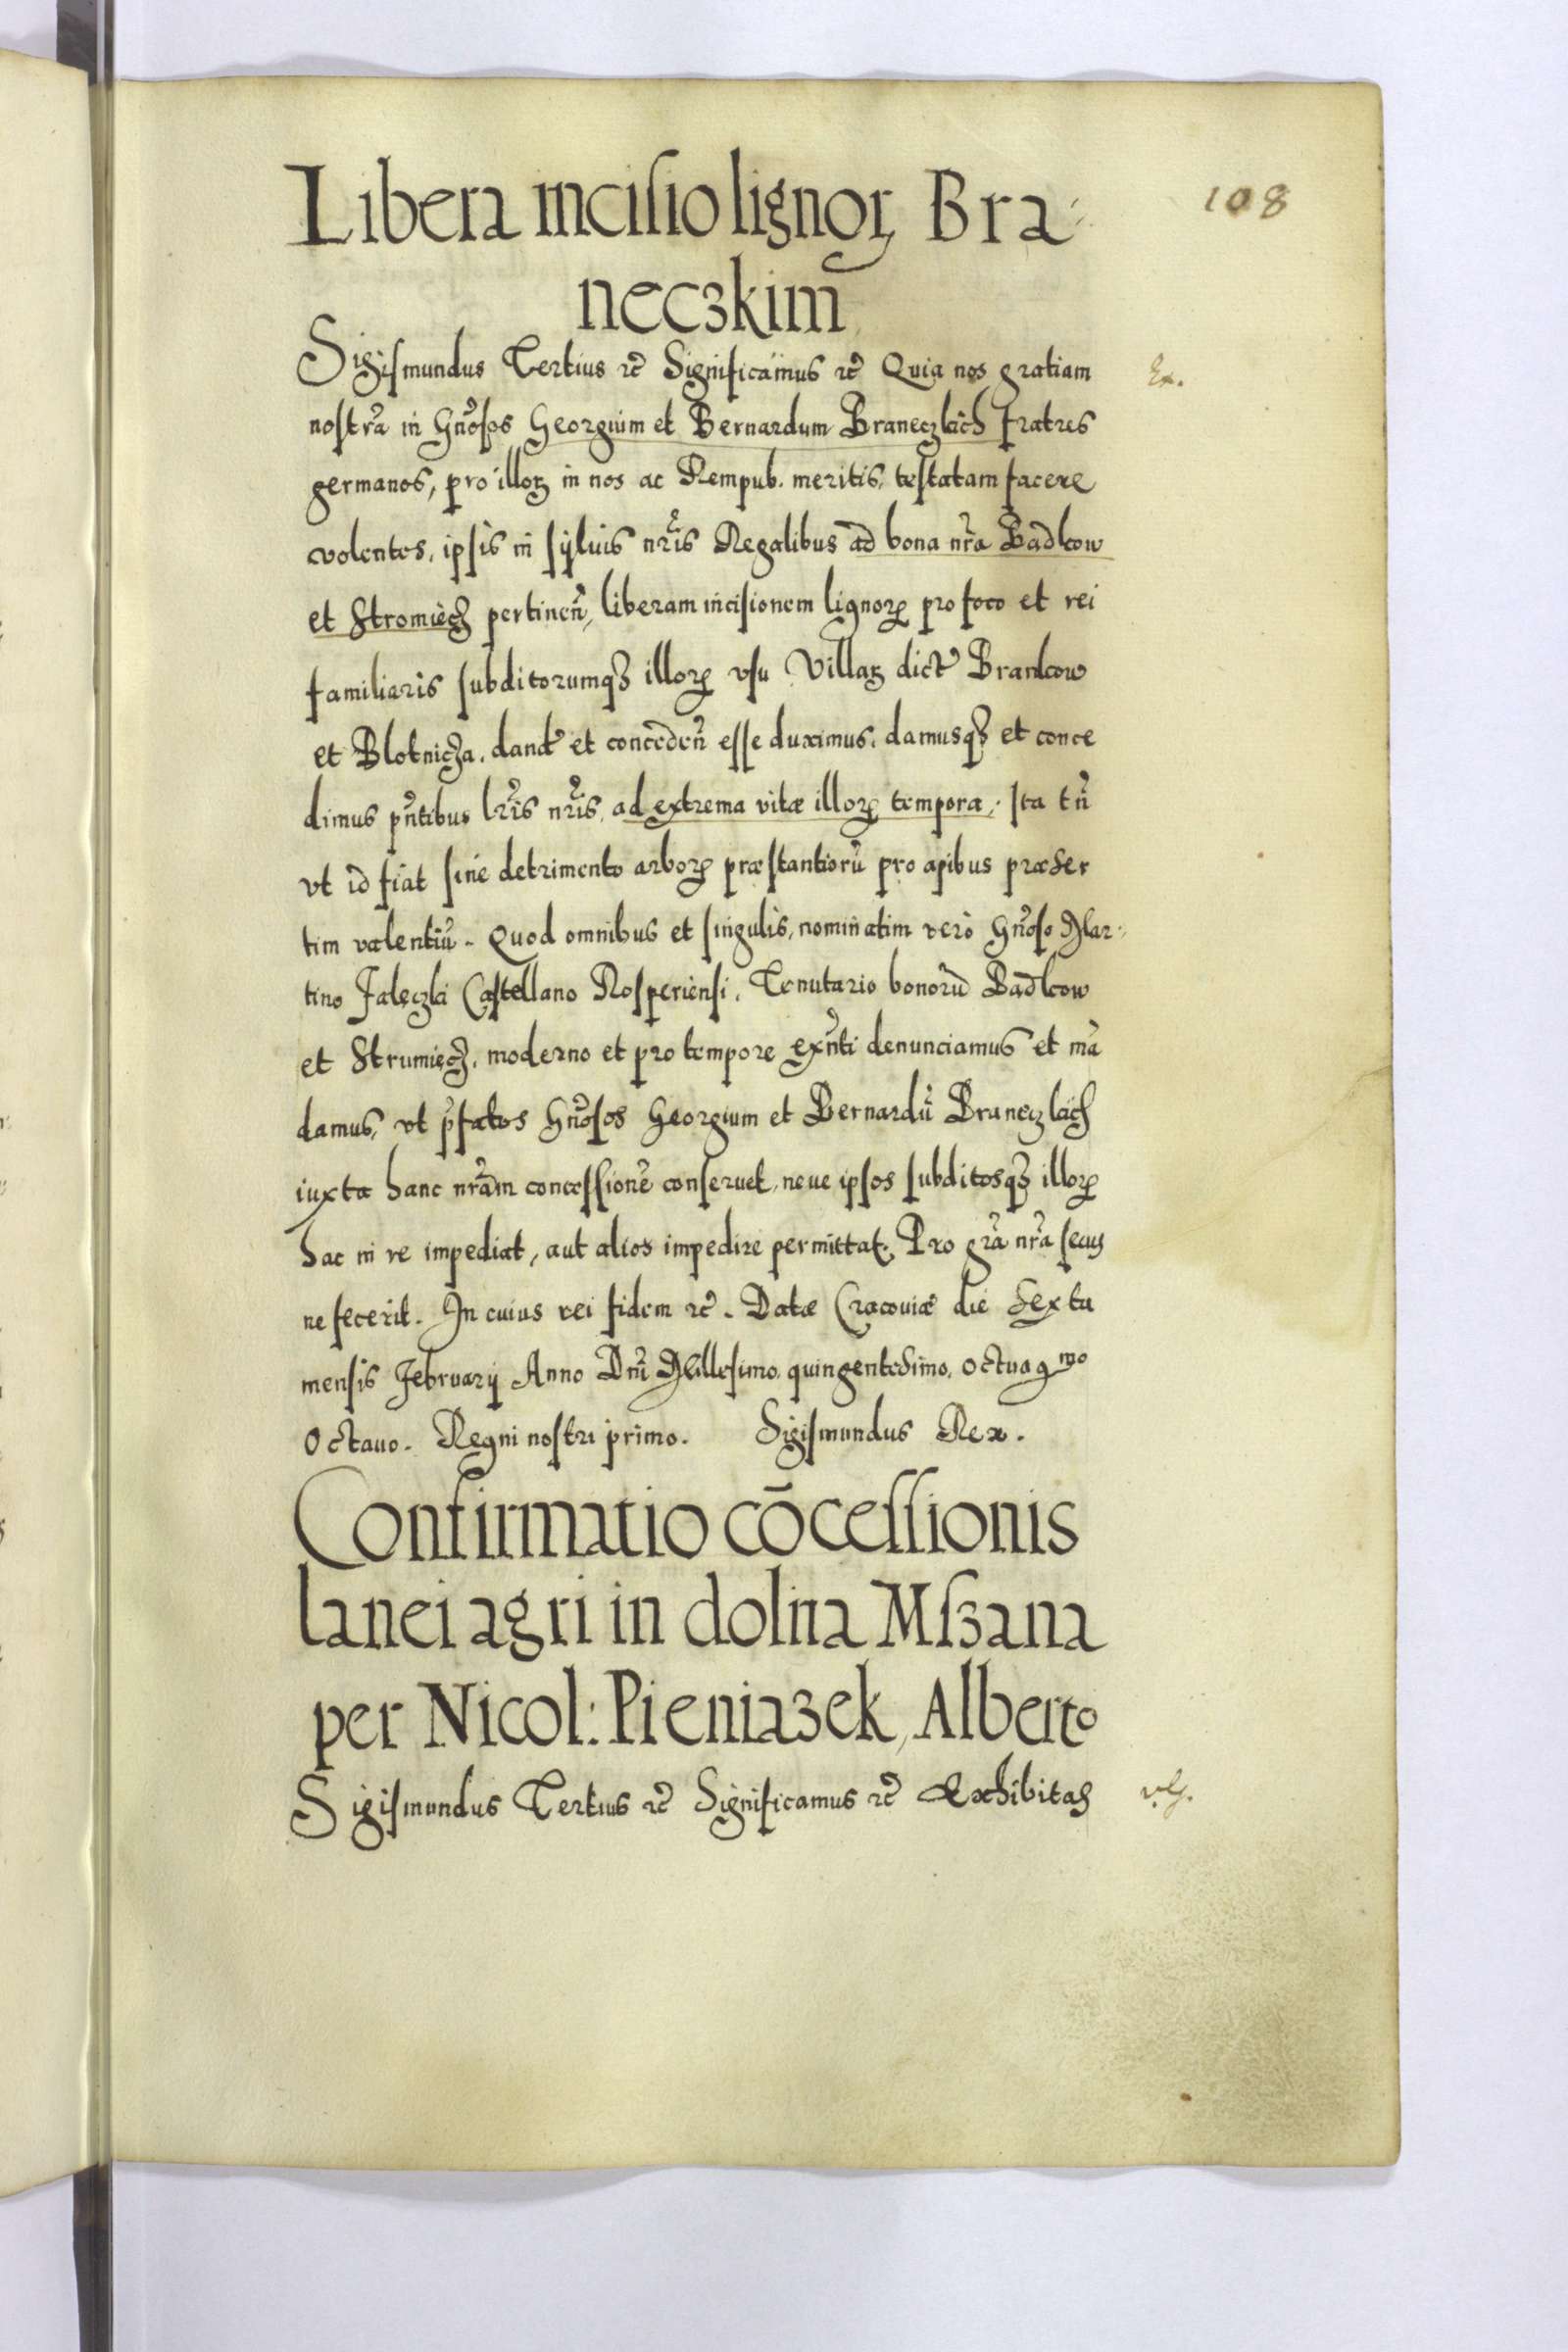 108
Libera incisio lignoꝝ Bra-
neczkim̄
Sigismundus Tertius ꝛc̃ Significamus ꝛc̃ Quia nos gratiam
nostrã in Gnõsos Georgium et Bernardum Braneczkich fratres
germanos, pro illoꝝ in nos ac Rempub. meritis, testatam facere
volentes, ipsis in syluis nr̃is Regalibus ad bona nr̃a Badkow
et Stromiecz pertineñ, liberam incisionem lignoꝝ pro foco et rei
familiaris subditorumqꝫ illoꝝ vsu Villaꝝ dict̃ Brankow
et Blotnicza, dand̃ et concedeñ esse duximus, damusqꝫ et conce
dimus pñtibus lr̃is nr̃is, ad extrema vitæ illoꝝ tempora, Ita tñ
vt id fiat sine detrimento arboꝝ præstantiorũ pro apibus præser
tim valentiũ. Quod omnibus et singulis, nominatim vero Gnõso Mar-
tino Faleczki Castellano Rosperiensi, Tenutario bonorũ Badkow
et Strumiecz, moderno et pro tempore exñti denunciamus et mã
damus, vt p̃fatos Gnõsos Georgium et Bernardũ Braneczkich
iuxta hanc nr̃am concessionẽ conseruet, neue ipsos subditosqꝫ illoꝝ
hac in re impediat, aut alios impedire permittat. Pro gr̃a nr̃a secus
ne fecerit. In cuius rei fidem ꝛc̃. Datæ Cracouiæ die Sexta
mensis February Anno Dñi Millesimo, quingentesimo, octuagmo
Octauo. Regni nostri primo. Sigismundus Rex.
Ex.
Confirmatio cōcessionis
lanei agri in dolna Mszana
per Nicol: Pieniazek, Alberto
Sigismundus Tertius ꝛc̃ Significamus ꝛc̃ Exhibitas